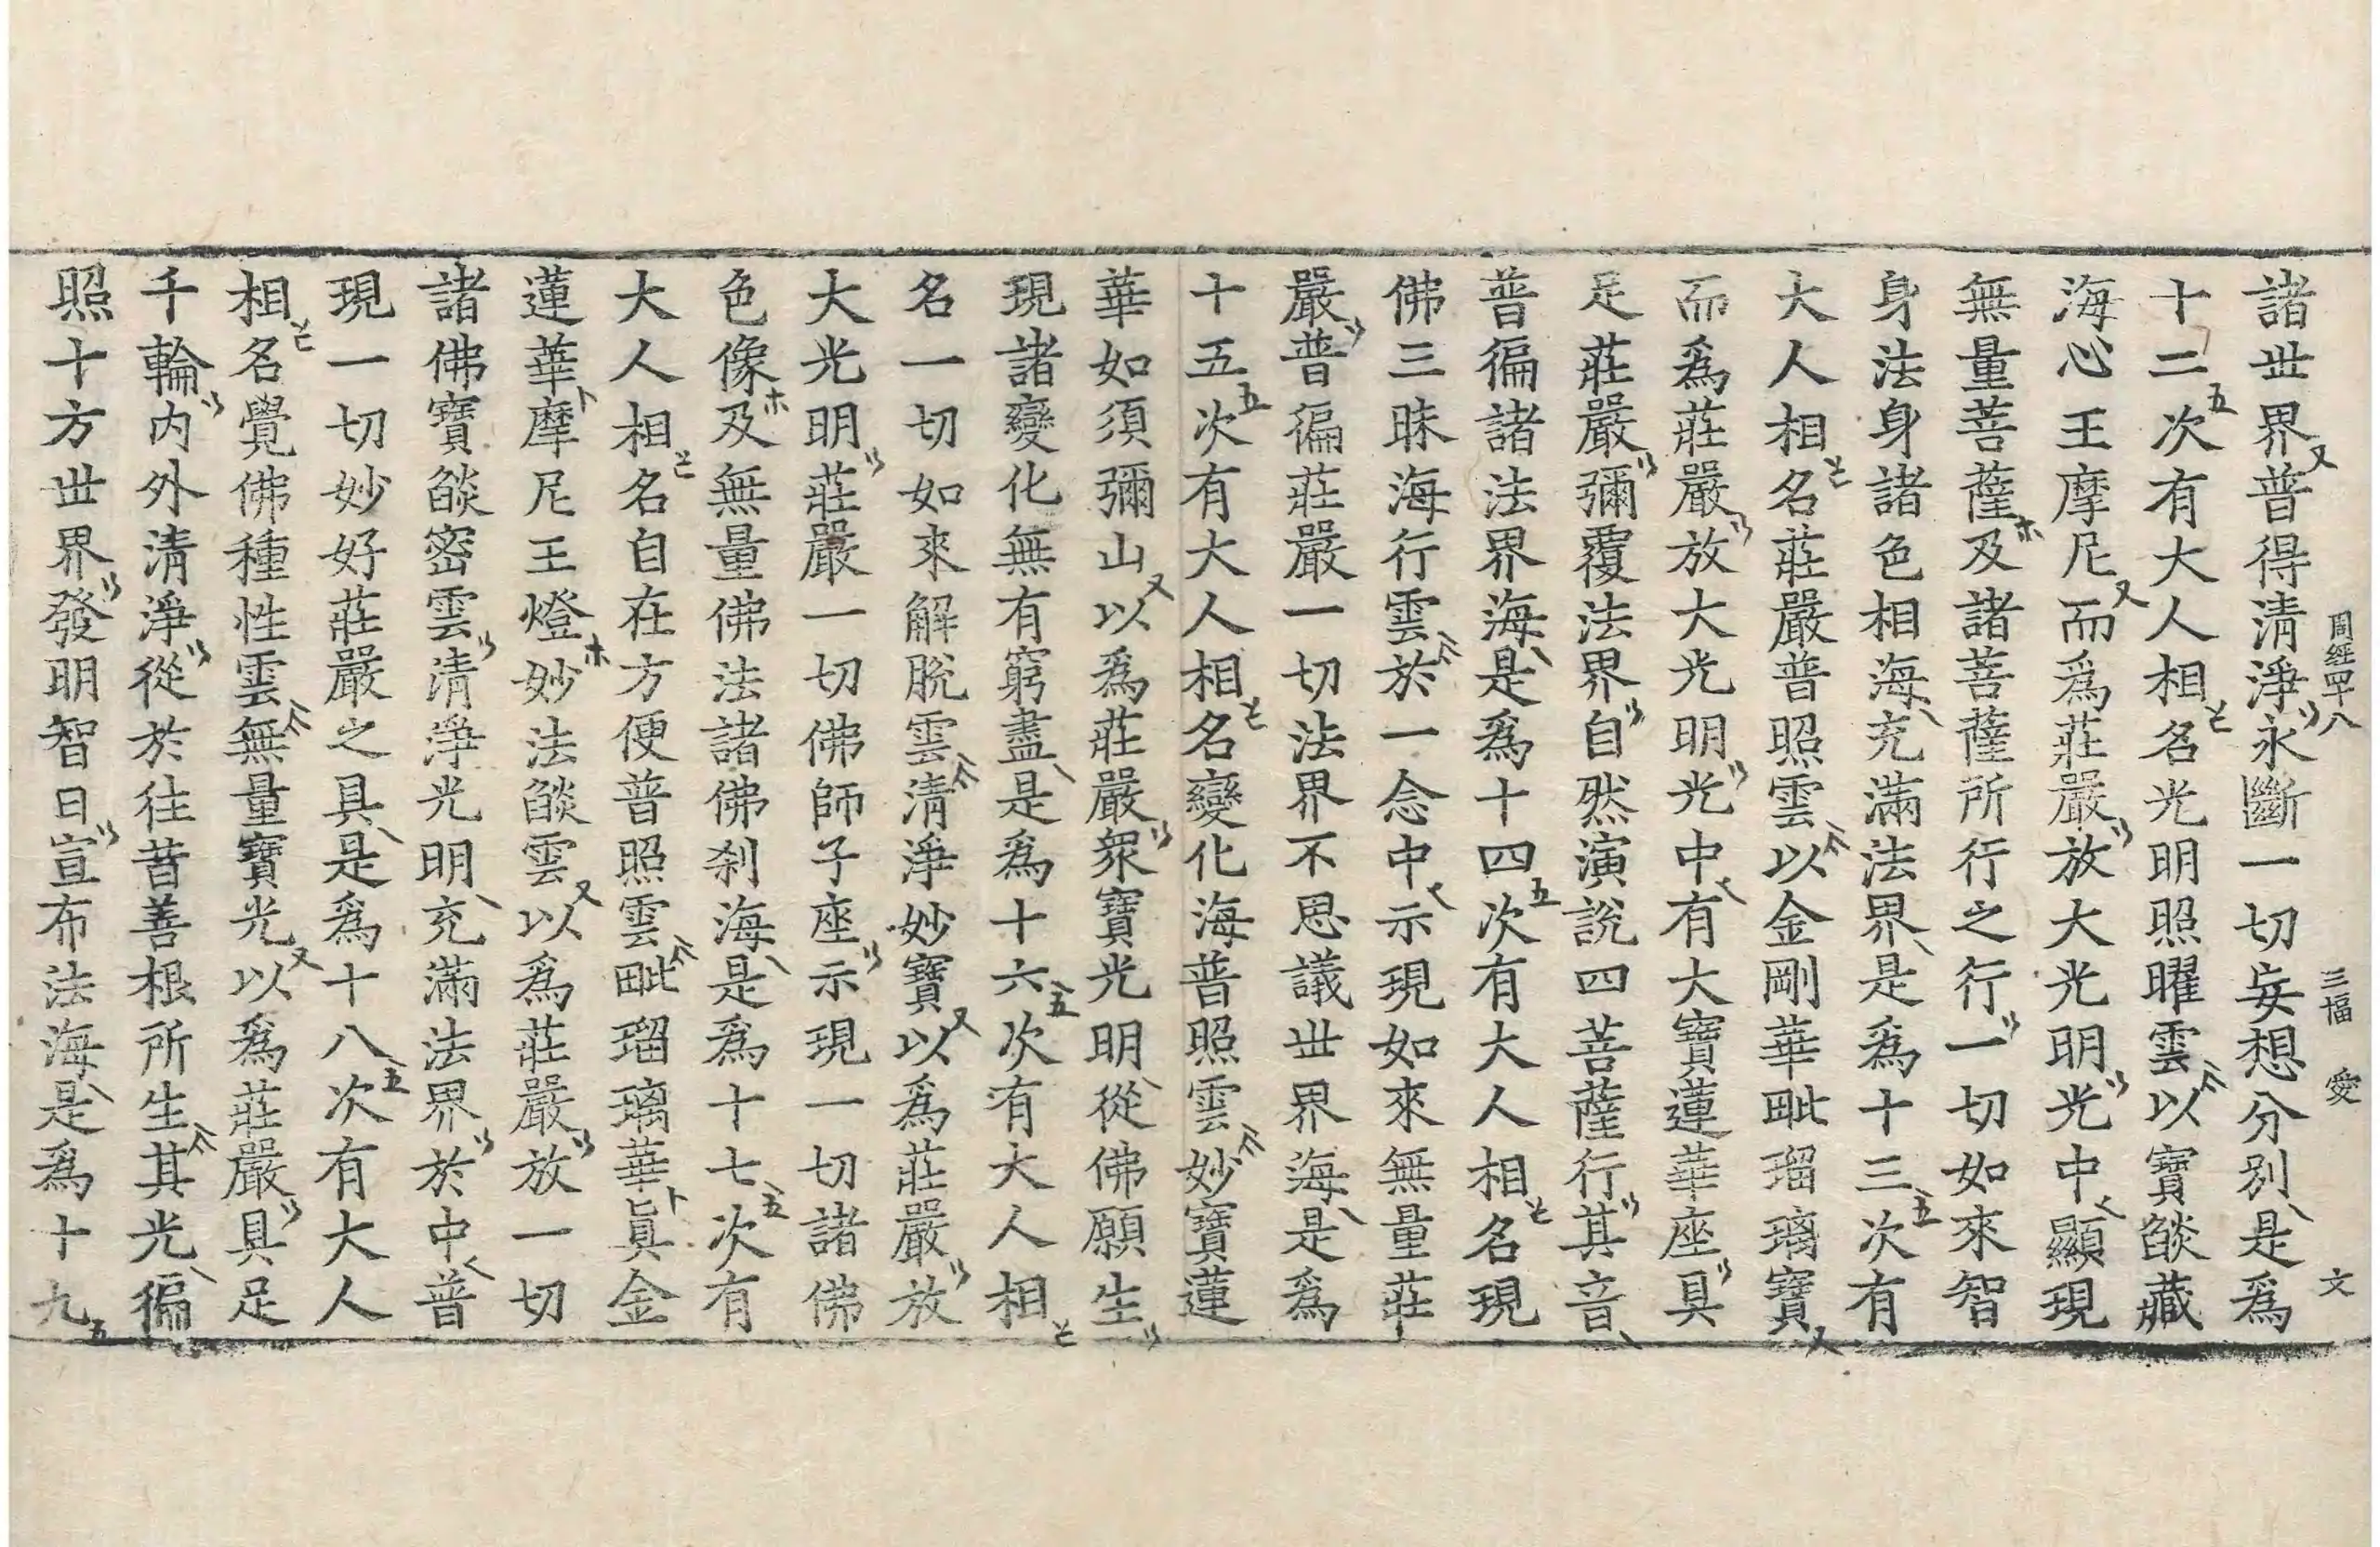 周經四十八　三幅　愛　文
諸世界普得清淨永斷一切妄想分別是爲
十二次有大人相名光明照曜雲以寶燄藏
海心王摩尼而爲莊嚴放大光明光中顯現
無量菩薩及諸菩薩所行之行一切如來智
身法身諸色相海充滿法界是爲十三次有
大人相名莊嚴普照雲以金剛華毗瑠璃寶
而爲莊嚴放大光明光中有大寶蓮華座具
足莊嚴彌覆法界自然演說四菩薩行其音
普徧諸法界海是爲十四次有大人相名現
佛三昧海行雲於一念中示現如來無量莊
嚴普徧莊嚴一切法界不思議世界海是爲
十五次有大人相名變化海普照雲妙寶蓮
華如須彌山以爲莊嚴衆寶光明從佛願生
現諸變化無有窮盡是爲十六次有大人相
名一切如來解脫雲清淨妙寶以爲莊嚴放
大光明莊嚴一切佛師子座示現一切諸佛
色像及無量佛法諸佛刹海是爲十七次有
大人相名自在方便普照雲毗瑠璃華眞金
蓮華摩尼王燈妙法燄雲以爲莊嚴放一切
諸佛寶燄密雲清淨光明充滿法界於中普
現一切妙好莊嚴之具是爲十八次有大人
相名覺佛種性雲無量寶光以爲莊嚴具足
千輪内外清淨從於往昔善根所生其光徧
照十方世界發明智日宣布法海是爲十九